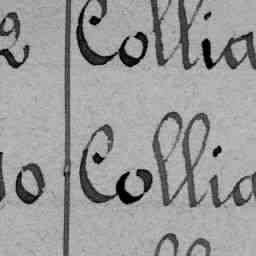 2 Collia
10 Collia